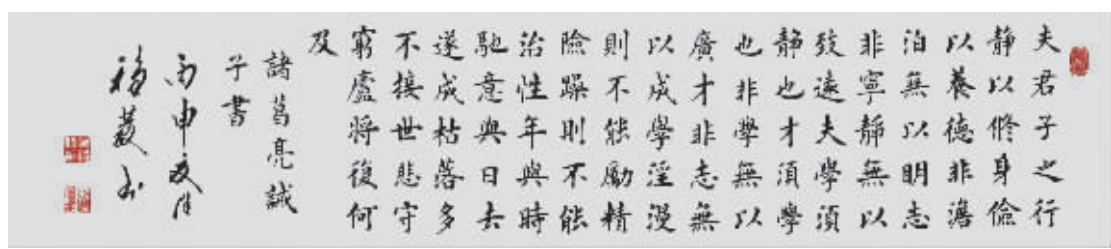 夫君子之行
静以修身儉
以養德非澹
泊無以明志
非寧静無以
致遠夫學須
静也才須學
也非學無以
廣才非志無
以成學淫漫
則不能勵精
險躁則不能
治性年與時
馳意與日去
遂成枯落多
不接世悲守
窮廬將復何
及
諸葛亮誡
子書
丙申夏月
书